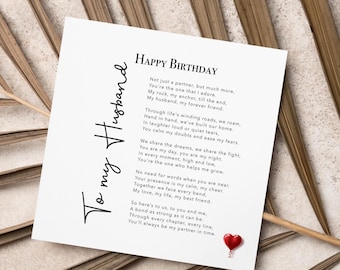 To my Husband
HAPPY BIRTHDAY
Not just a partner, but much more,
You're the one that I adore.
My rock, my anchor, till the end,
My husband, my forever friend.
Through life's winding roads, we roam,
Hand in hand, we've built our home.
In laughter loud or quiet tears,
You calm my doubts and ease my fears.
We share the dreams, we share the fight,
You are my day, you are my night,
In every moment, high and low,
You're the one who helps me grow.
No need for words when you are near,
Your presence is my calm, my cheer.
Together we face every bend,
My love, my life, my best friend.
So here's to us, to you and me,
A bond as strong as it can be.
Through every chapter, every line,
You'll always be my partner in time.